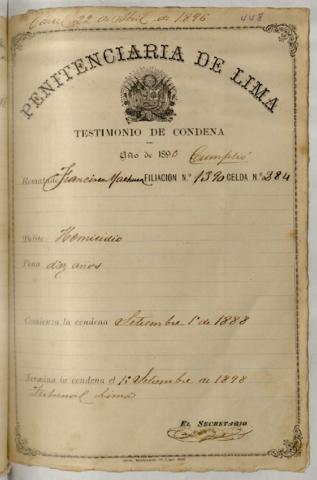 22 de Abril de 1896 448
PENITENCIARIA DE LIMA
TESTIMONIO DE CONDENA
Año de 1890 Cumplió
Rematado Francisco Machuca FILIACION N.º 1390 CELDA N.º 284
Delito Homicidio
Pena diez años
Comienza la condena Setiembre 1º de 1888
Termina la condena el 1º Setiembre de 1898
Tribunal Lima
EL SECRETARIO